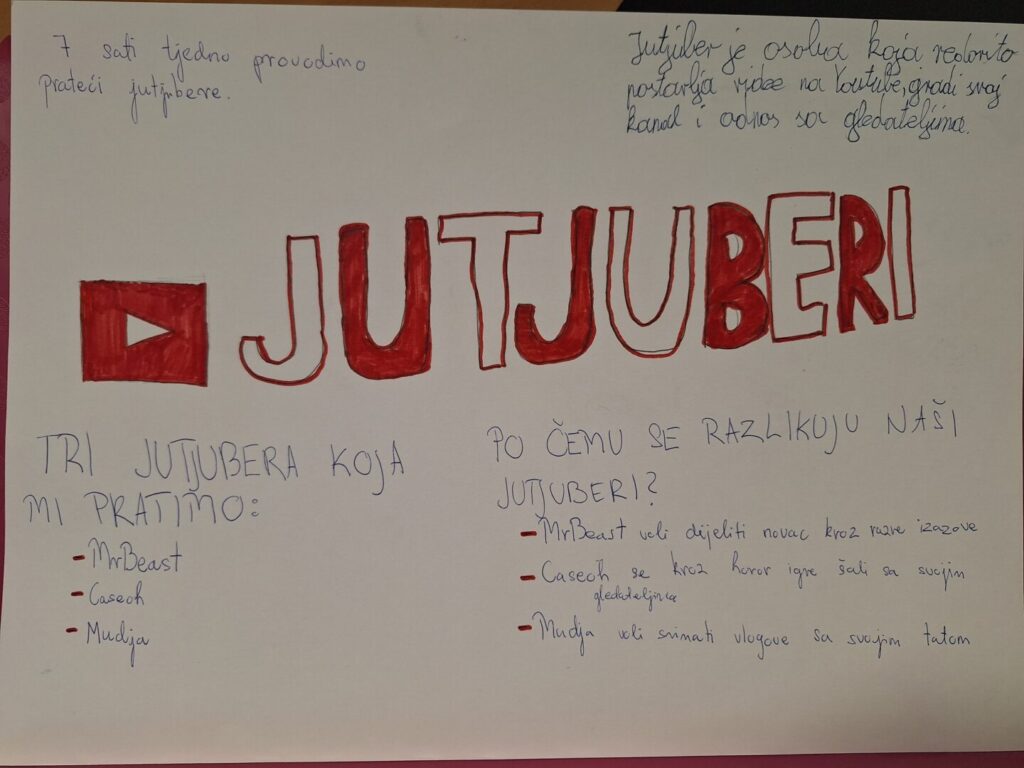 7 sati tjedno provodimo
prateći jutjubere.
Jutjuber je osoba koja redovito
postavlja videe na Youtube, gradi svoj
kanal i odnos sa gledateljima.
JUTJUBERI
TRI JUTJUBERA KOJA
MI PRATIMO:
- MrBeast
- Caseoh
- Mudja
PO ČEMU SE RAZLIKUJU NAŠI
JUTJUBERI?
- MrBeast voli dijeliti novac kroz razne izazove
- Caseoh se kroz horor igre šali sa svojim
gledateljima
- Mudja voli snimati vlogove sa svojim tatom